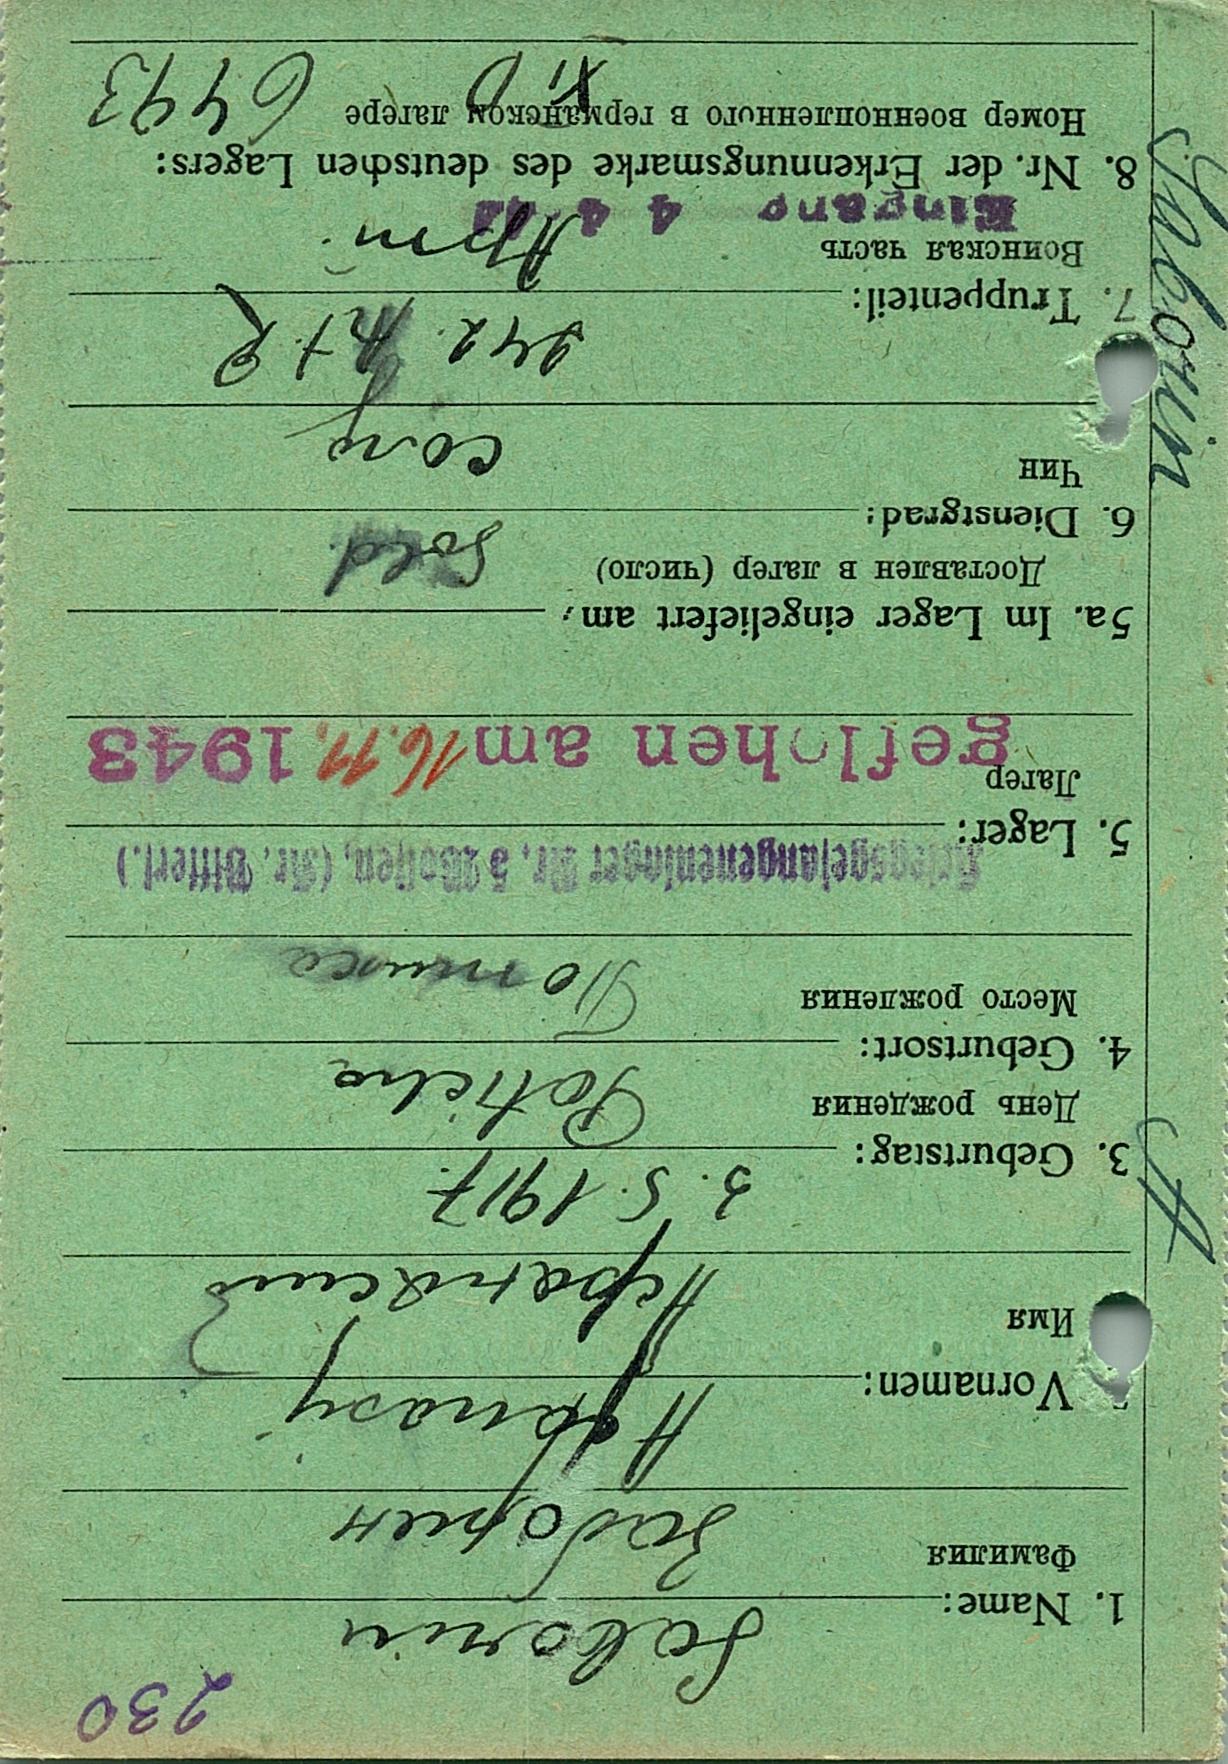 230
Saborin
1. Name:
Фамилия
Заборин
Afanasij
Vornamen:
Имя
Афанасий
3. 5. 1917.
3. Geburtstag:
День рождения
Poticha
4. Geburtsort:
Место рождения
Kriegsgefangenenlager Nr. 5 Wolfen, (Kr. Bitterf.)
5. Lager:
Лагер
geflohen am 16. 11. 1943
5a. Im Lager eingeliefert am:
Доставлен в лагер (число)
Sold.
6. Dienstgrad:
Чин
сол
242.
7. Truppenteil:
Воинская часть
Арт.
Eingang 4 4
8. Nr. der Erkennungsmarke des deutschen Lagers:
Номер военнопленного в германском лагере
XI D 6443
Saborin A